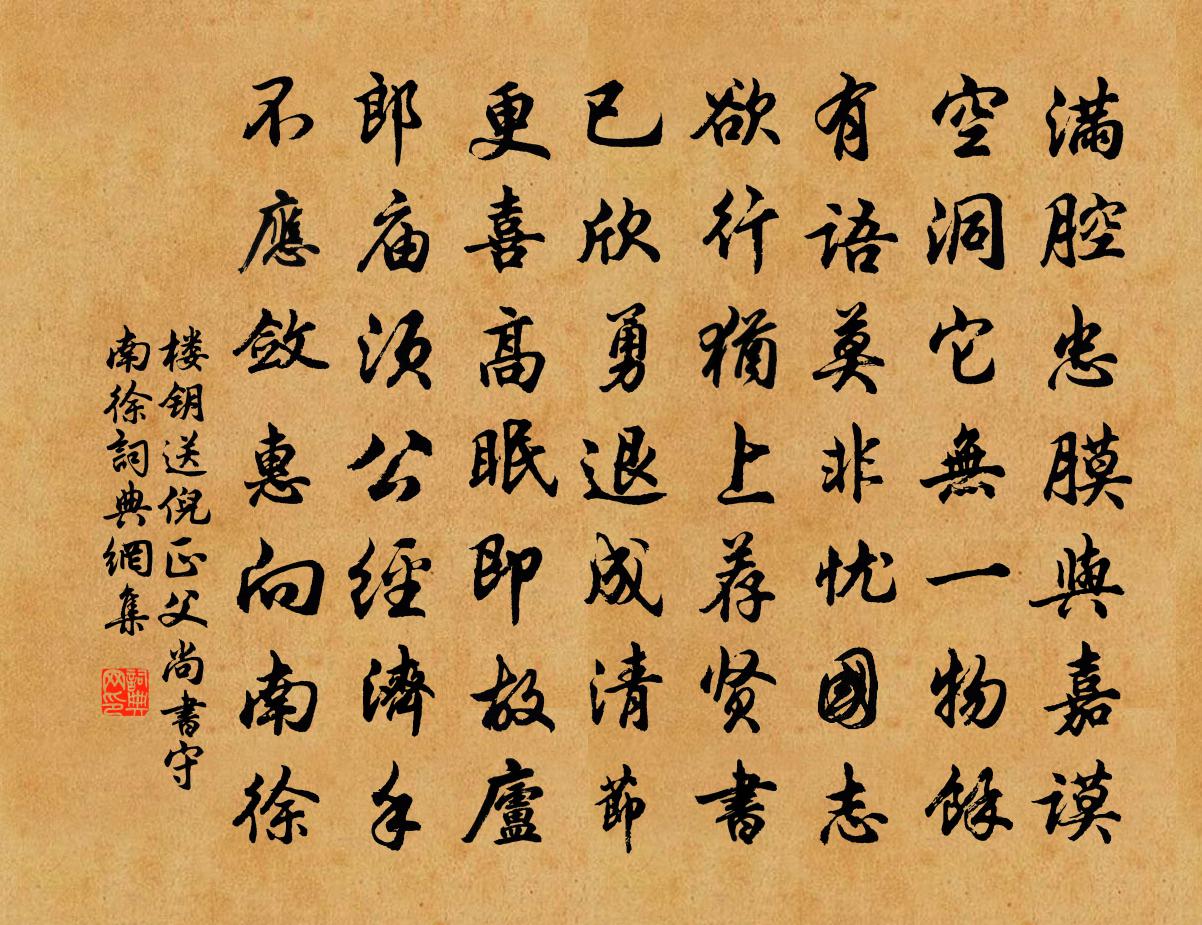 滿腔忠膜與嘉謨
空洞它無一物餘
有語莫非忧國志
欲行猶上荐贤書
已欣勇退成清節
更喜高眠即故廬
郎庙須公經濟手
不應斂惠向南徐
楼钥送倪正父尚書守
南徐詞典網集
詞典网印